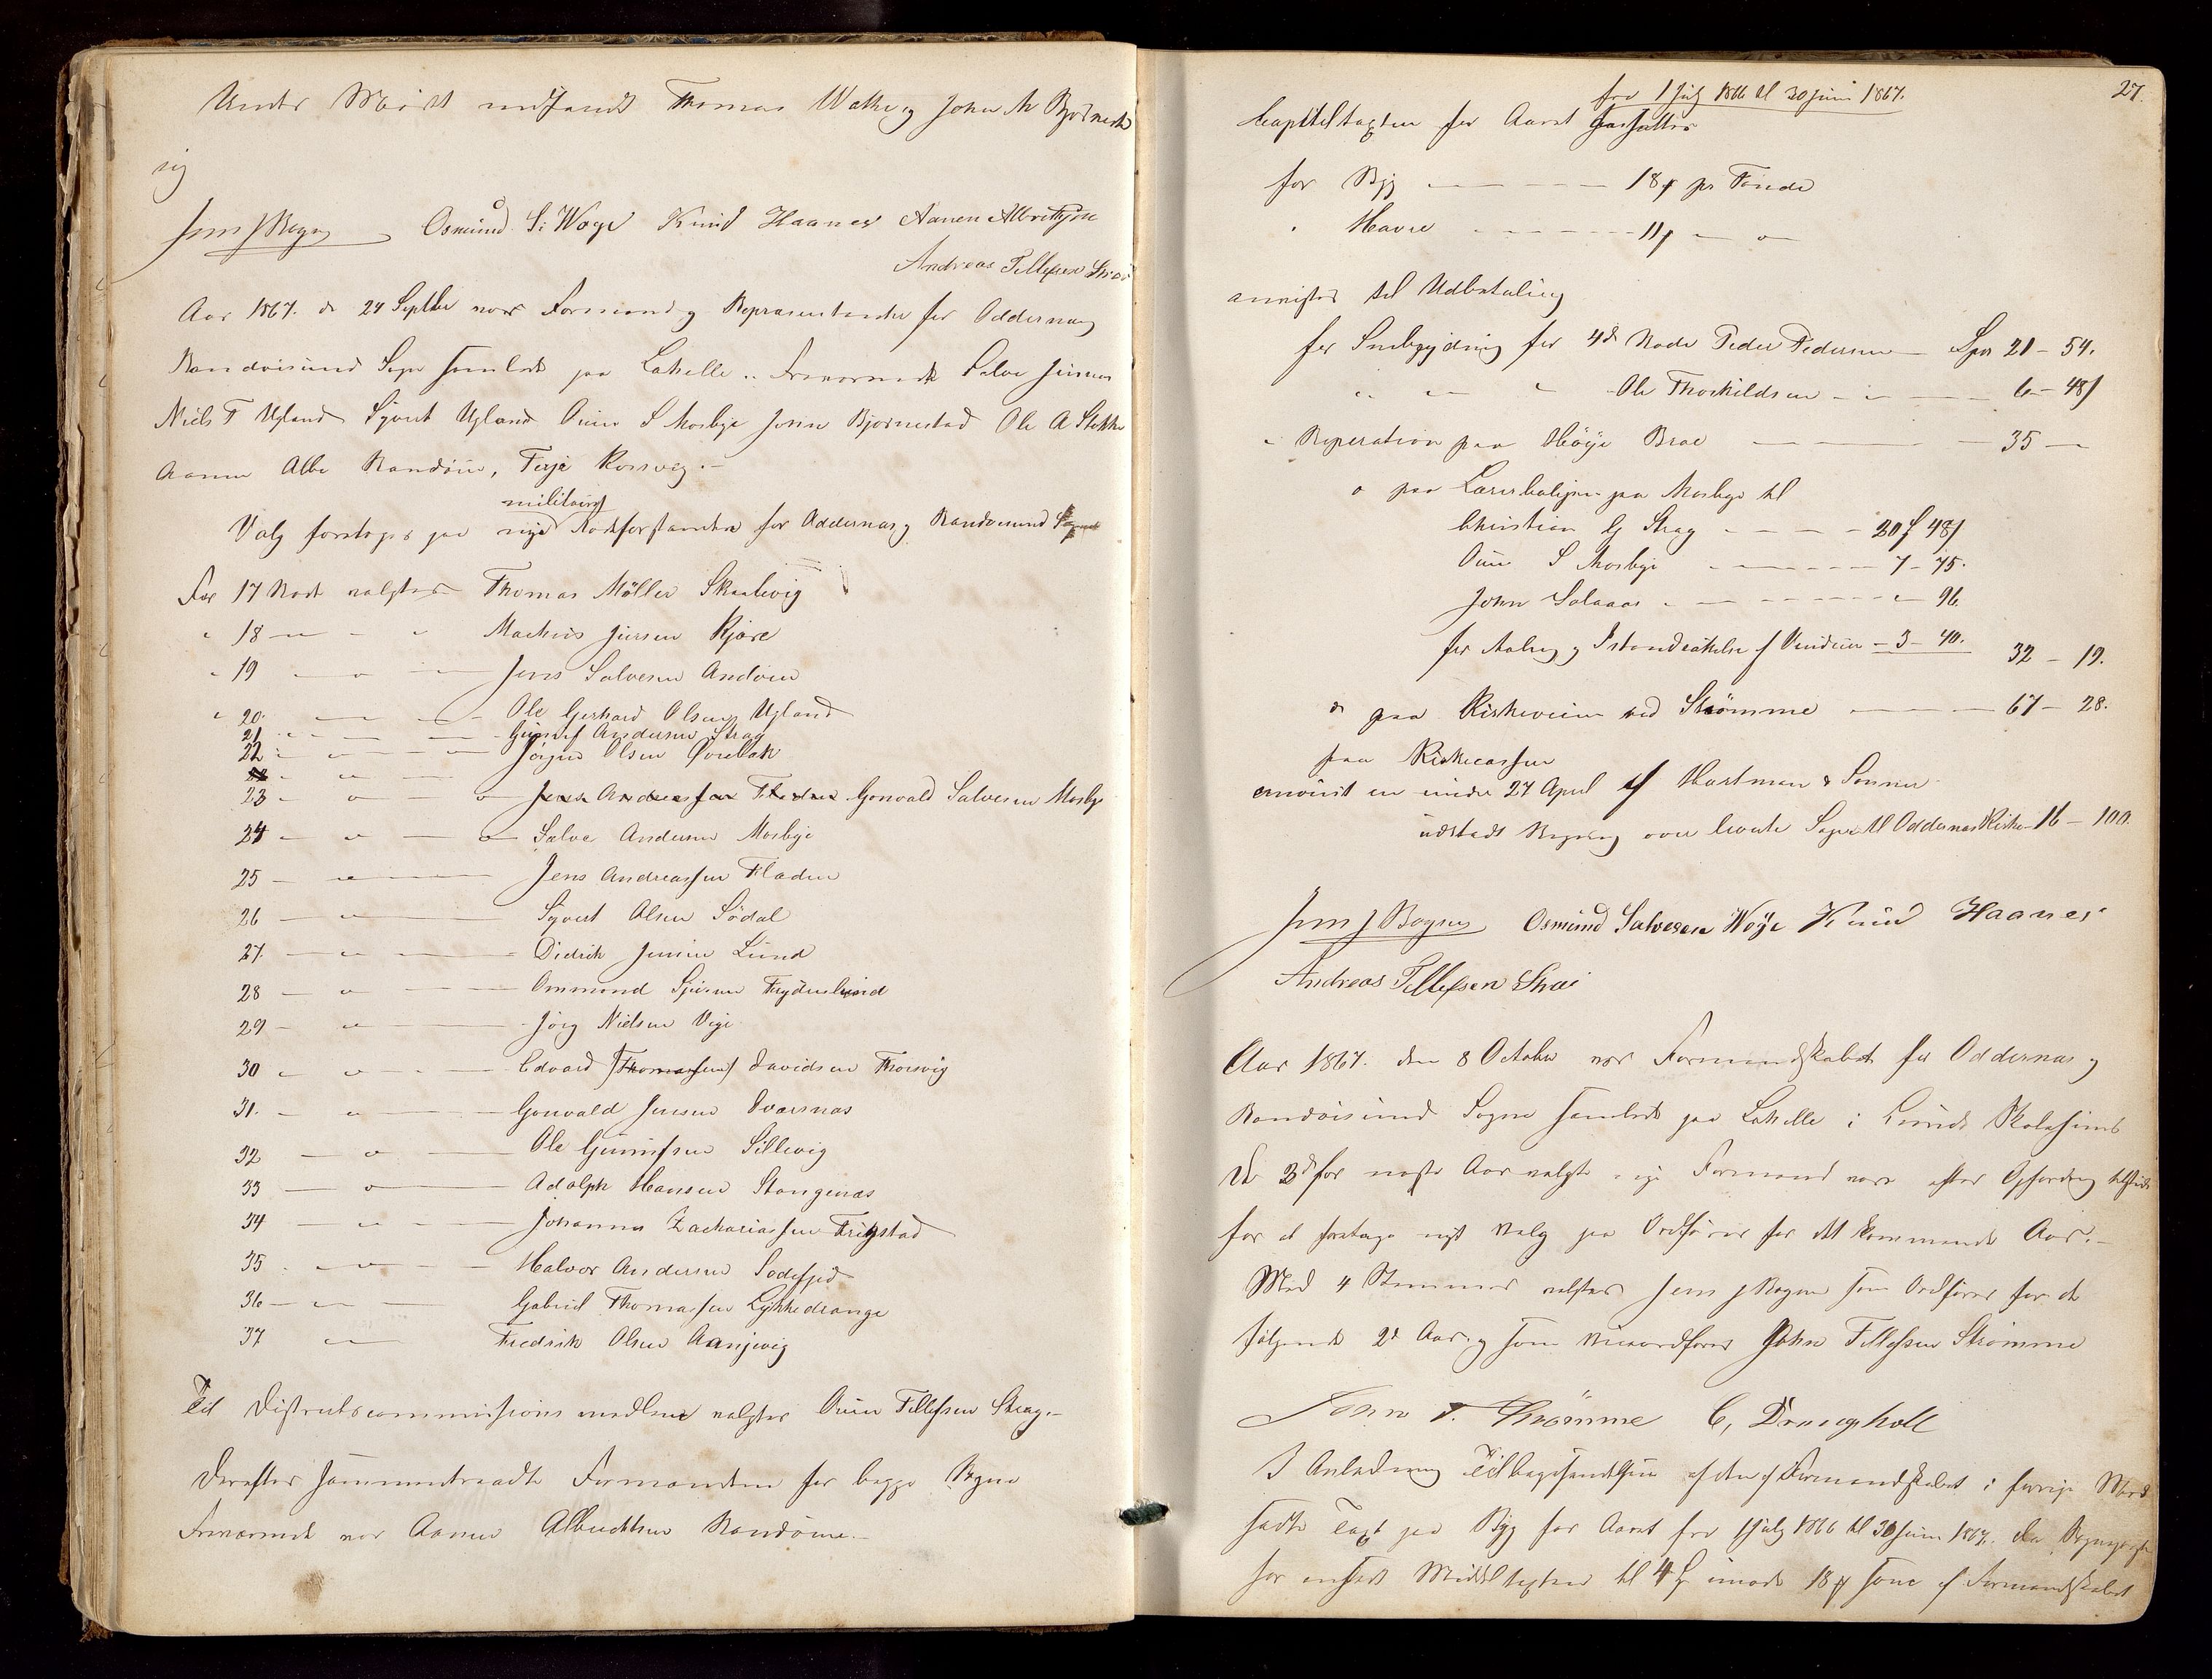 Under Mødet indfandt Thomas Wathe og John A Bjørnestd
sig
Jens J Bogen Osmund S: Woye Knud Haanes Aanen Albretsen
Andreas Tellefsen Strai
Aar 1867. d 24 Septbr var Formænd og Repræsentanter for Oddernæs og
Randøisund Sogn samlede paa Lahelle .. Fraværende Salve Jensen
Niels T Ugland Sjvert Ugland Ouen S Mosbye Jens Bjørnestad Ole A Stokke
Aanen Albr Randøen, Terje Korsvig.-
militairt
Valg foretoges paa nye Rodeforstandere for Oddernæs og Randøesund
For 17 Rode valgtes Thomas Møller Skaalevig
" 18 — " — " Mathis Jensen Kjære
" 19 — " — Jens Salvesen Andøen
" 20. — Ole Gerhard Olsen Ugland
21 — Gunuf Andersen Strag
22 — " — Jörgen Olsen Øvrebøk
23 — " — " Jens Andreassen Fladen Gonvald Salvesen Mosby
24 — " — " Salve Andersen Mosbye
25 — " — Jens Andreassen Fladen
26 — " — Syvert Olsen Södal
27. — " — Didrik Jensen Lund
28 — " — Ommund Frydenlund
29 — " — Jörg Nielsen Vige
30 — " — Edvard (Thomassen) Davidsen Thorsvig
31. — " — Gonvald Jensen Dvaersnæs
32 — " — Ole Gunufsen Sillevig
33 — " — Adolph Hansen Stangenæs
34 — " — Johannes Zachariassen Frigstad
35 — " — Halvor Andersen
36 — " — Gabriel Thomassen Lykkedrange
37 — Fredrik Olsen Aanjevig
Til Districtscommissions medlem valgtes Ouen Tellefsen Strag.-
Derefter sammentraadte Formændene for begge Sogne
Fraværende var Aanen Albrechtsen Randøen.-
27.
fra 1 July 1866 til 30 Juni 1867.
Capitelstaxten for Aaret fastsattes
for Byg — 18 ß pr Tønde
" Havre — 11 ß — " —
anvistes til Udbetaling
for Snebrydning for 4de Rode Peder Pedersen — Spd 21 - 54.
" " " Ole Thorkildsen — 6 - 48 ß
" Reperation paa Höije Broe — 35 —
" paa paa Mosbye til
Christian G Strag — 20 48 ß
Ouen S Mosbye — 7 - 75.
John Solaas — 96.
for Maling og Istandsættelse af Vinduer - 3 - 40. 32 - 19.
do paa Kirkeveien ved Strömme — 67 - 28.
paa Kirkecassen
anviist en under 27 April af Hartman & Sönner
udstedt Regning over leverte Sager til Oddernæs Kirke 16 - 100.
Jens J Bogen Osmund Salvesen Woye Knud Haanes
Andreas Tellefsen Strai
Aar 1867. den 8 October var Formandskabet for Oddernæs og
Randøisund Sogne samlede paa Lahelle i Lunds Skolehuus
De 3de for næste Aar valgte nye Formænd vare efter Opfordring tilstede
for at foretage nyt Valg paa Ordfører for det kommende Aar.-
Med 4 Stemmer valgtes Jens J Bogen som Ordfører for de
følgende 2de Aar og som Viceordfører John Tellefsen Strømme
John T. Strömme C, Drangsholt
I Anledning Tilbagesendelsen af den af Formandskabet i forrige Møde
satte Taxt paa Byg for Aaret fra 1 July 1866 til 30 Juni 1867. da
har ansat Middeltaxten til 4 imod 18 ß som af Formandskabet